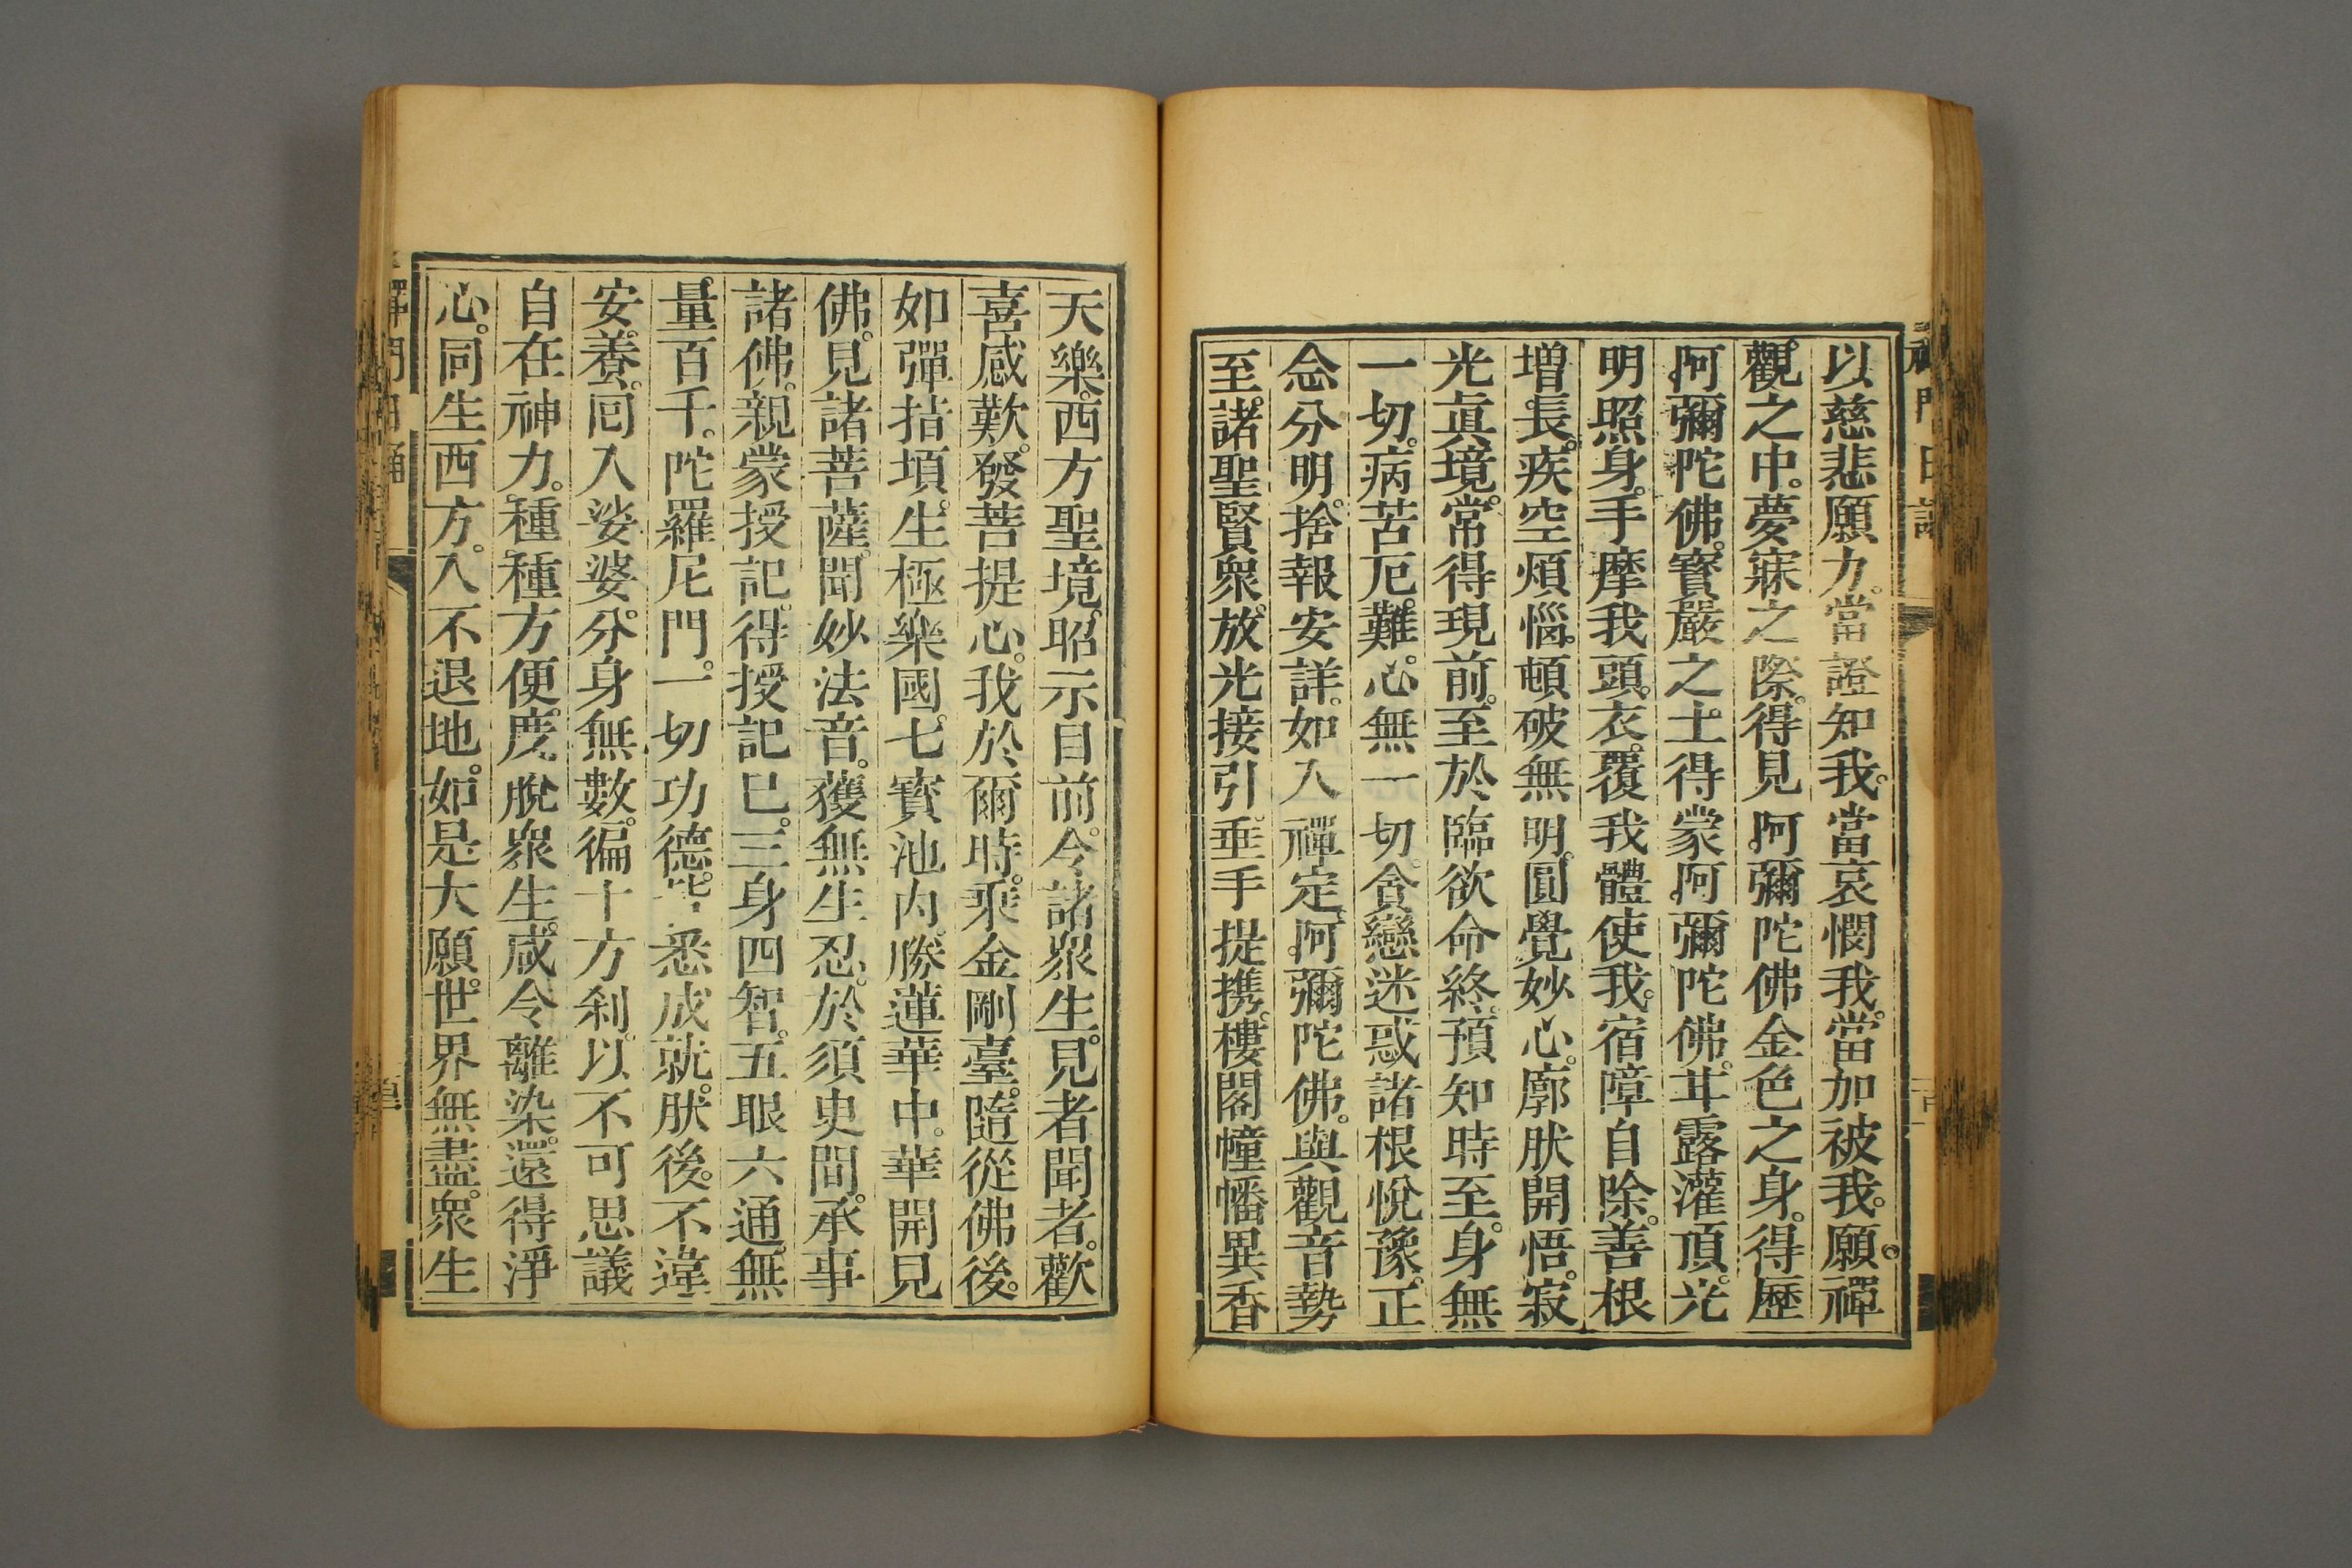 以慈悲願力。當證知我。當哀憫我。當加被我。願禪
觀之中。夢寐之際。得見阿彌陀佛金色之身。得歷
阿彌陀佛。寳嚴之土。得蒙阿彌陀佛。甘露灌頂。光
明照身。手摩我頭。衣覆我體。使我。宿障自除。善根
增長。疾空煩惱。頓破無明。圓覺妙心。廓肰開悟。寂
光眞境。常得現前。至於臨欲命終。預知時至。身無
一切。病苦厄難。心無一切。貪戀迷惑。諸根悅豫。正
念分明。捨報安詳。如入禪定。阿彌陀佛。與觀音勢
至。諸聖賢衆。放光接引。垂手提携。樓閣幢幡。異香
天樂。西方聖境。昭示目前。令諸衆生。見者聞者。歡
喜感歎。發菩提心。我於爾時。乘金剛臺。隨從佛後。
如彈指頃。生極樂國。七寳池內。勝蓮華中。華開見
佛。見諸菩薩。聞妙法音。獲無生忍。於須史間。承事
諸佛。親蒙授記。得授記已。三身四智。五眼六通。無
量百千。陀羅尼門。一切功德。皆悉成就。肰後。不違
安養。囘入娑婆。分身無數。徧十方刹。以不可思議
自在神力。種種方便。度脫衆生。咸令離染。還得淨
心。同生西方。入不退地。如是大願。世界無盡。衆生